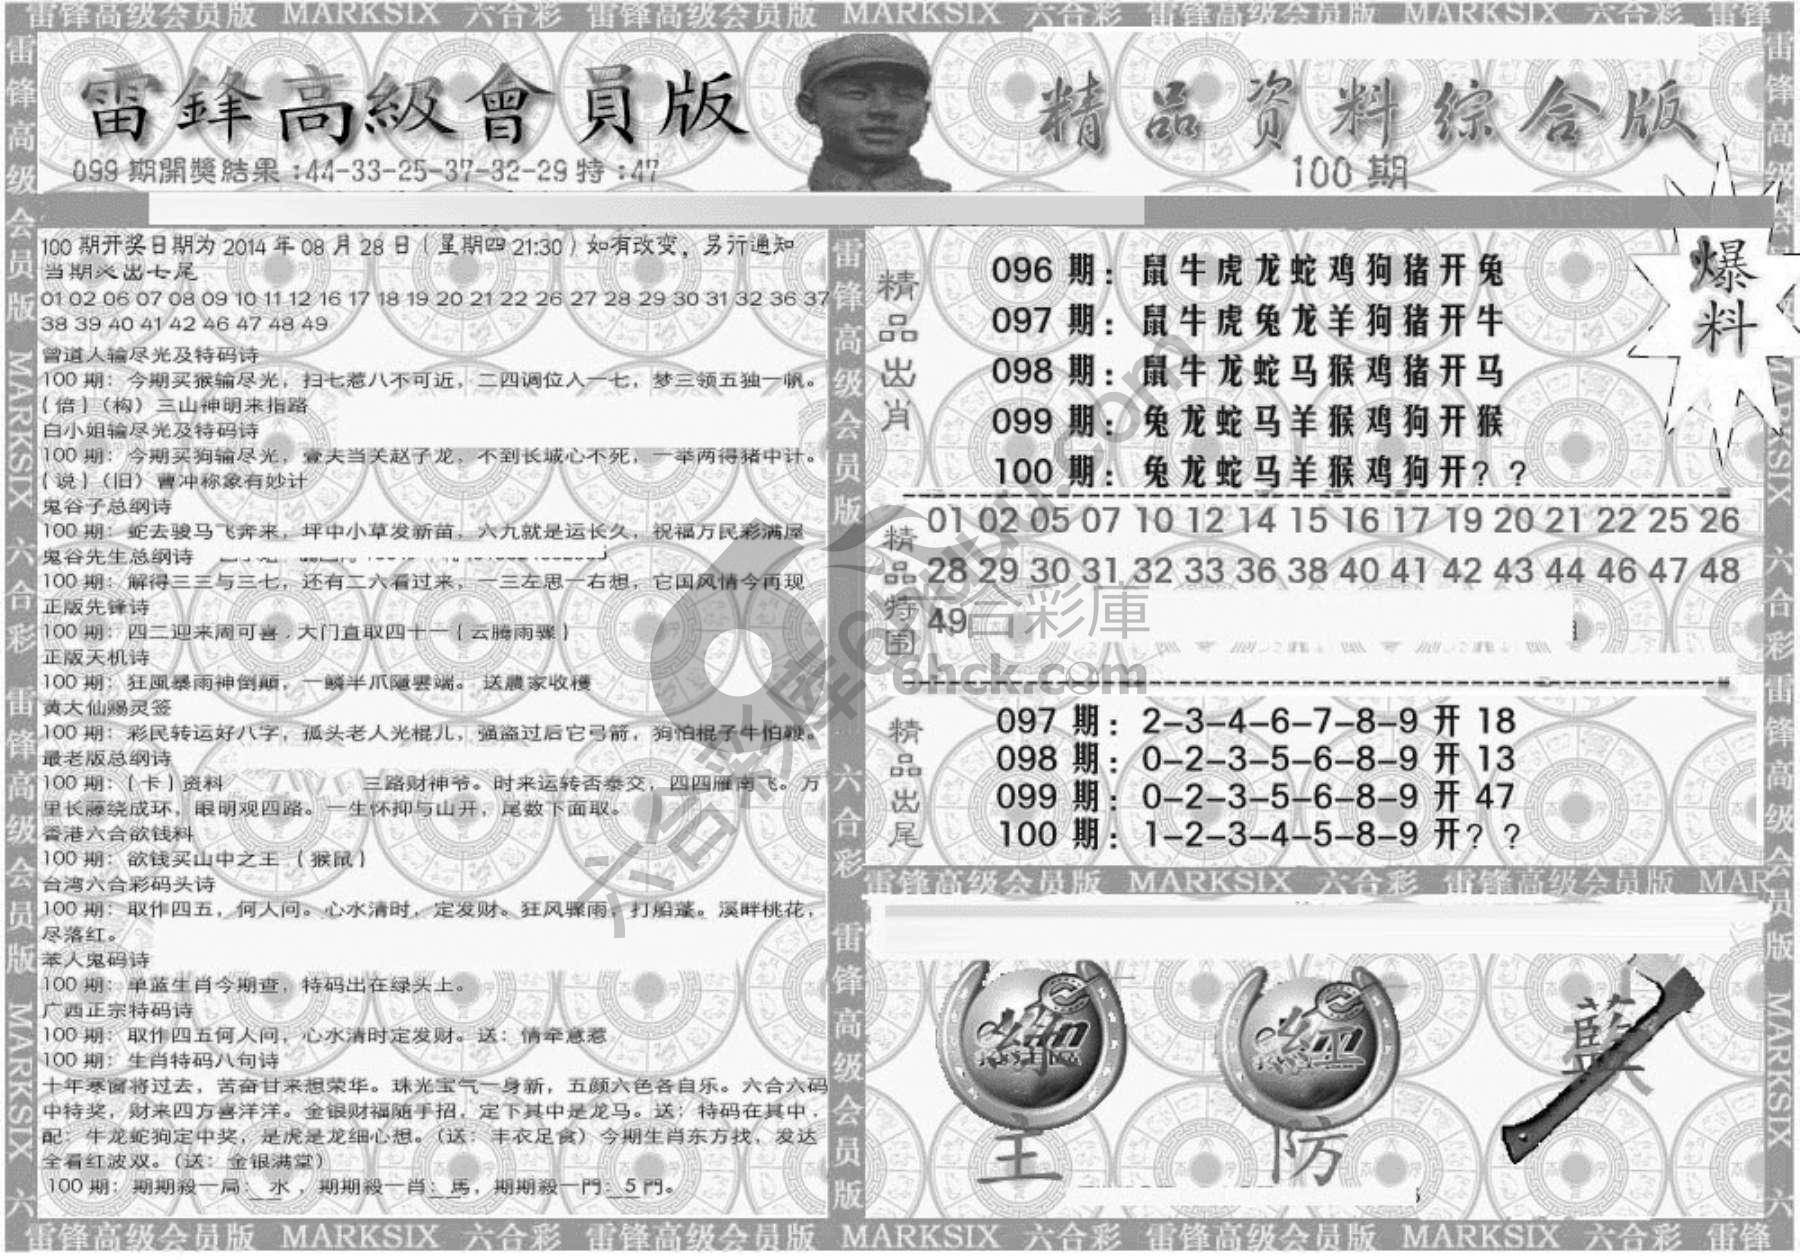 雷锋高级会员版 MARKSIX 六合彩 雷锋高级会员版 MARKSIX 六合彩 雷锋高级会员版 MARKSIX 六合彩 雷锋
雷鋒高級會員版
099 期開獎結果 :44-33-25-37-32-29 特 :47
精品资料综合版
100 期
爆料
100 期开奖日期为 2014 年 08 月 28 日 ( 星期四 21:30 ) 如有改变，另行通知
当期必出七尾
01 02 06 07 08 09 10 11 12 16 17 18 19 20 21 22 26 27 28 29 30 31 32 36 37
38 39 40 41 42 46 47 48 49
曾道人输尽光及特码诗
100 期：今期买猴输尽光，扫七惹八不可近，二四调位入一七，梦三领五独一帆。
{ 倍 }（构）三山神明来指路
白小姐输尽光及特码诗
100 期：今期买狗输尽光，壹夫当关赵子龙，不到长城心不死，一举两得猪中计。
{ 说 }（旧）曹冲称象有妙计
鬼谷子总纲诗
100 期：蛇去骏马飞奔来，坪中小草发新苗，六九就是运长久，祝福万民彩满屋
鬼谷先生总纲诗
100 期：解得三三与三七，还有二六看过来，一三左思一右想，它国风情今再现
正版先锋诗
100 期：四二迎来周可喜．大门直取四十一 { 云腾雨骤 }
正版天机诗
100 期：狂風暴雨神倒顛，一鱗半爪隱雲端。 送農家收穫
黄大仙赐灵签
100 期：彩民转运好八字，孤头老人光棍儿，强盗过后它弓箭，狗怕棍子牛怕鞭。
最老版总纲诗
100 期：{ 卡 } 资料 三路财神爷。时来运转否泰交，四四雁南飞。万
里长藤绕成环，眼明观四路。一生怀抑与山开，尾数下面取。
香港六合欲钱料
100 期：欲钱买山中之王 { 猴鼠 }
台湾六合彩码头诗
100 期：取作四五，何人问。心水清时，定发财。狂风骤雨，打船蓬。溪畔桃花，
尽落红。
笨人鬼码诗
100 期：单蓝生肖今期查，特码出在绿头上。
广西正宗特码诗
100 期：取作四五何人问，心水清时定发财。送：情牵意惹
100 期：生肖特码八句诗
十年寒窗将过去，苦奋甘来想荣华。珠光宝气一身新，五颜六色各自乐。六合六码
中特奖，财来四方喜洋洋。金银财福随手招，定下其中是龙马。送：特码在其中．
配：牛龙蛇狗定中奖，是虎是龙细心想。（送：丰衣足食）今期生肖东方找，发达
全看红波双。（送：金银满堂）
100 期：期期殺一局：水 ，期期殺一肖：馬，期期殺一門：5 門。
精品出肖
096 期：鼠牛虎龙蛇鸡狗猪开兔
097 期：鼠牛虎兔龙羊狗猪开牛
098 期：鼠牛龙蛇马猴鸡猪开马
099 期：兔龙蛇马羊猴鸡狗开猴
100 期：兔龙蛇马羊猴鸡狗开？？
精品特围
01 02 05 07 10 12 14 15 16 17 19 20 21 22 25 26
28 29 30 31 32 33 36 38 40 41 42 43 44 46 47 48
49
六合彩庫
6hck.com
精品出尾
097 期：2-3-4-6-7-8-9 开 18
098 期：0-2-3-5-6-8-9 开 13
099 期：0-2-3-5-6-8-9 开 47
100 期：1-2-3-4-5-8-9 开？？
雷锋高级会员版 MARKSIX 六合彩 雷锋高级会员版 MAR
藍
王
防
雷锋高级会员版 MARKSIX 六合彩 雷锋高级会员版 MARKSIX 六合彩 雷锋高级会员版 MARKSIX 六合彩 雷锋